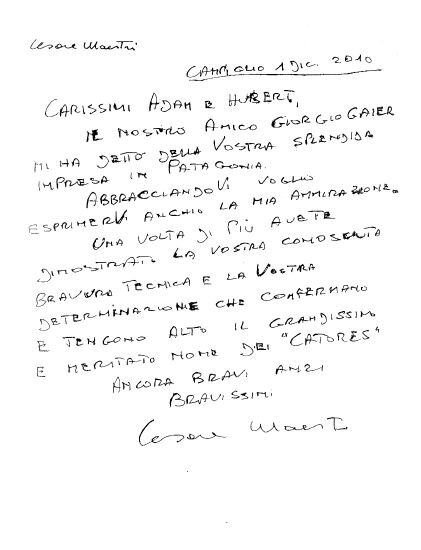 Cesare Maestri
CAMPIGLIO 1 DIC. 2010
CARISSIMI ADAM E HUBERT,
IL NOSTRO AMICO GIORGIO GAIER
MI HA DETTO DELLA VOSTRA SPLENDIDA
IMPRESA IN PATAGONIA.
ABBRACCIANDOVI VOGLIO
ESPRIMERVI ANCHIO LA MIA AMMIRAZIONE.
UNA VOLTA DI PIÙ AVETE
DIMOSTRATO LA VOSTRA CONOSENTA
BRAVURA TECNICA E LA VOSTRA
DETERMINAZIONE CHE CONFERMANO
E TENGONO ALTO IL GRANDISSIMO
E MERITATO NOME DEI "CATORES"
ANCORA BRAVI ANZI
BRAVISSIMI
Cesare Maestri